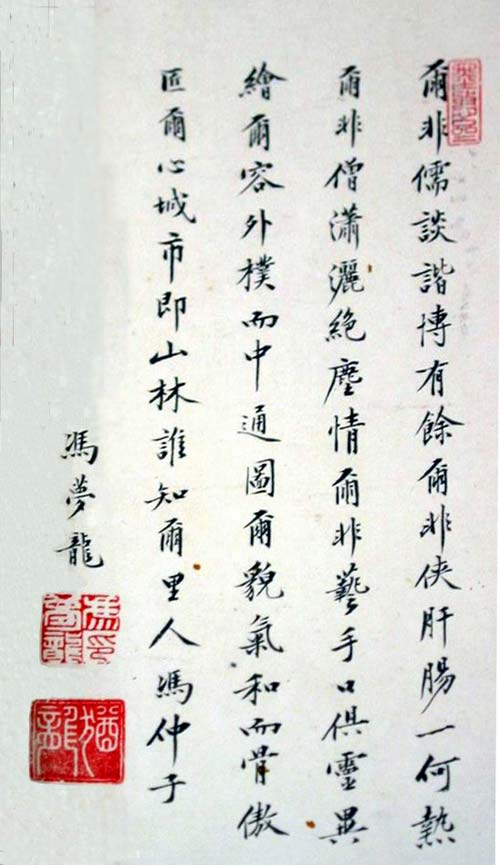 爾非儒談諧博有餘爾非俠肝腸一何熱
爾非僧瀟灑絕塵情爾非藝手口俱靈異
繪爾容外樸而中通圖爾貌氣和而骨傲
匠爾心城市即山林誰知爾里人馮仲子
馮夢龍
馮夢龍印
猶龍